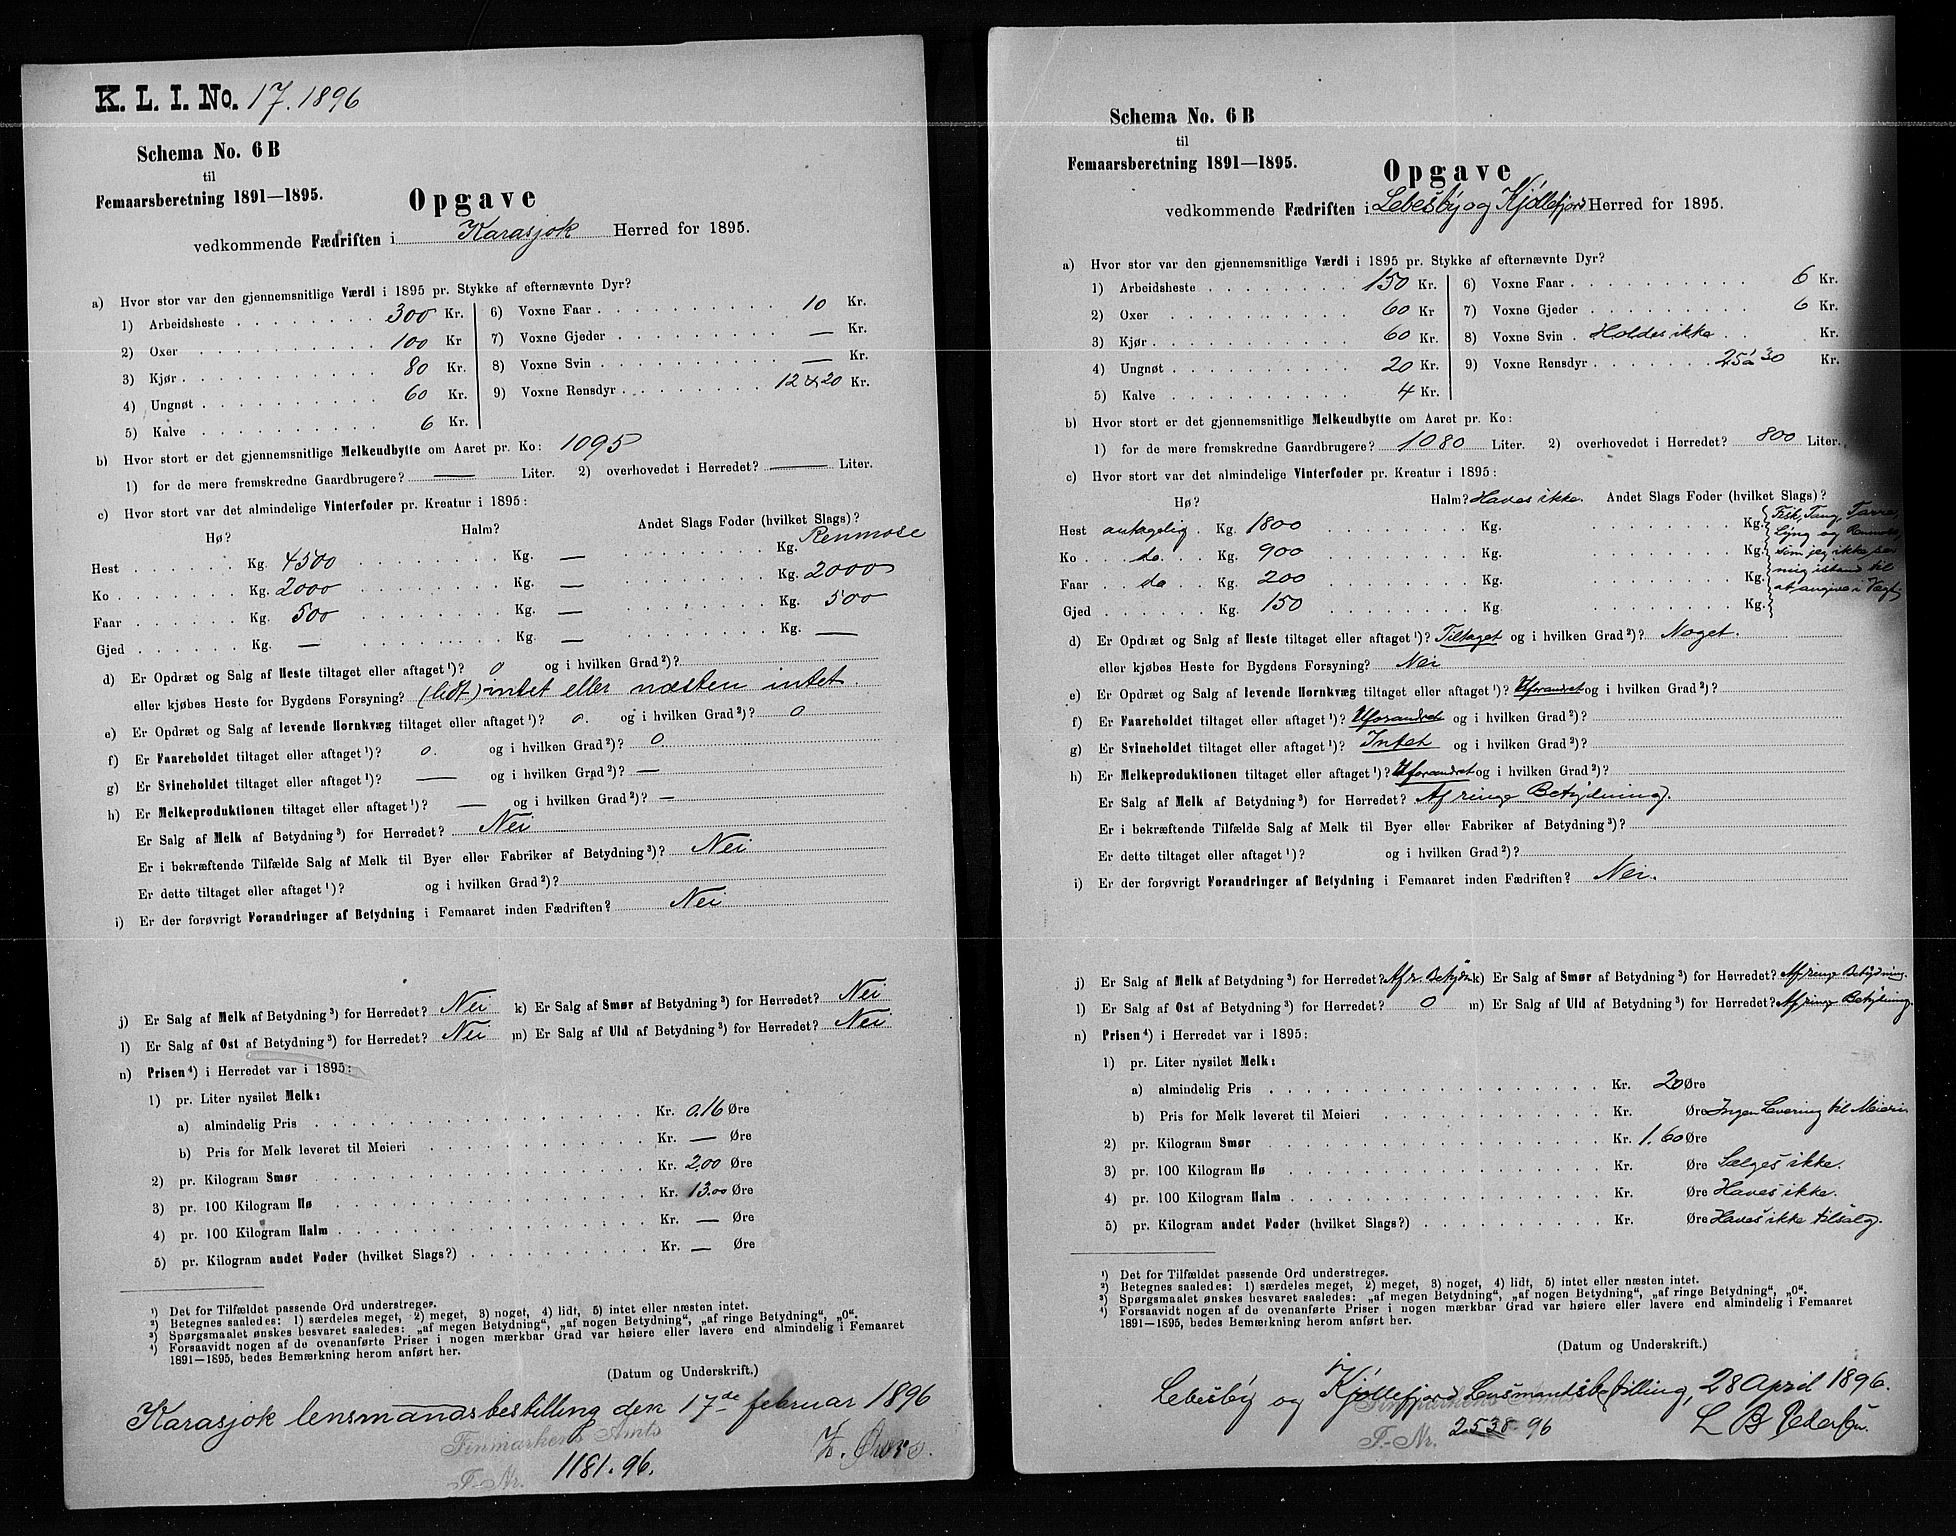 K. L. I. No. 17. 1896
Schema No. 6 B
til
Femaarsberetning 1891—1895.
Opgave
vedkommende Fædriften i Karasjok Herred for 1895.
a) Hvor stor var den gjennemsnitlige Værdi i 1895 pr. Stykke af efternævnte Dyr?
1) Arbeidsheste 300 Kr.
2) Oxer 100 Kr
3) Kjør 80 Kr.
4) Ungnøt 60 Kr.
5) Kalve 6 Kr.
6) Voxne Faar 10 Kr.
7) Voxne Gjeder — Kr.
8) Voxne Svin — Kr.
9) Voxne Rensdyr 12 à 20 Kr.
b) Hvor stort er det gjennemsnitlige Melkeudbytte om Aaret pr. Ko: 1095
1) for de mere fremskredne Gaardbrugere? — Liter. 2) overhovedet i Herredet? — Liter.
c) Hvor stort var det almindelige Vinterfoder pr. Kreatur i 1895:
Hø? Halm? Andet Slags Foder (hvilket Slags)?
Renmose
Hest Kg. 4500 Kg. — Kg.
Ko Kg. 2000 Kg. — Kg. 2000
Faar Kg. 500 Kg. — Kg. 500
Gjed Kg. — Kg. — Kg. —
d) Er Opdræt og Salg af Heste tiltaget eller aftaget¹)? 0 og i hvilken Grad²)?
eller kjøbes Heste for Bygdens Forsyning? (lidt) intet eller næsten intet.
e) Er Opdræt og Salg af levende Hornkvæg tiltaget eller aftaget¹)? 0. og i hvilken Grad²)? 0
f) Er Faareholdet tiltaget eller aftaget¹)? 0. og i hvilken Grad²)? 0.
g) Er Svineholdet tiltaget eller aftaget¹)? — og i hvilken Grad²)? —
h) Er Melkeproduktionen tiltaget eller aftaget¹)? — og i hvilken Grad²)? —
Er Salg af Melk af Betydning³) for Herredet? Nei
Er i bekræftende Tilfælde Salg af Melk til Byer eller Fabriker af Betydning³)? Nei
Er dette tiltaget eller aftaget¹)? og i hvilken Grad²)?
i) Er der forøvrigt Forandringer af Betydning i Femaaret inden Fædriften? Nei
j) Er Salg af Melk af Betydning³) for Herredet? Nei k) Er Salg af Smør af Betydning³) for Herredet? Nei
l) Er Salg af Ost af Betydning³) for Herredet? Nei m) Er Salg af Uld af Betydning³) for Herredet? Nei
n) Prisen⁴) i Herredet var i 1895:
1) pr. Liter nysilet Melk:
a) almindelig Pris Kr. 0.16 Øre
b) Pris for Melk leveret til Meieri Kr. — Øre
2) pr. Kilogram Smør Kr. 2.00 Øre
3) pr. 100 Kilogram Hø Kr. 13.00 Øre
4) pr. 100 Kilogram Halm Kr. — Øre
5) pr. Kilogram andet Foder (hvilket Slags?) Kr. — Øre
¹) Det for Tilfældet passende Ord understreges.
²) Betegnes saaledes: 1) særdeles meget, 2) meget, 3) noget, 4) lidt, 5) intet eller næsten intet.
³) Spørgsmaalet ønskes besvaret saaledes: „af megen Betydning“, „af nogen Betydning“, „af ringe Betydning“, „0“.
⁴) Forsaavidt nogen af de ovenanførte Priser i nogen mærkbar Grad var høiere eller lavere end almindelig i Femaaret
1891—1895, bedes Bemærkning herom anført her.
(Datum og Underskrift.)
Karasjok lensmandsbestilling den 17de februar 1896
Finmarkens Amts
F.-Nr. 1181. 96.
Schema No. 6 B
til
Femaarsberetning 1891—1895.
Opgave
vedkommende Fædriften i Lebesby og Kjöllefjord Herred for 1895.
a) Hvor stor var den gjennemsnitlige Værdi i 1895 pr. Stykke af efternævnte Dyr?
1) Arbeidsheste 150 Kr.
2) Oxer 60 Kr
3) Kjør 60 Kr.
4) Ungnøt 20 Kr.
5) Kalve 4 Kr.
6) Voxne Faar 6 Kr.
7) Voxne Gjeder 6 Kr.
8) Voxne Svin Holdes ikke Kr.
9) Voxne Rensdyr 25 à 30 Kr.
b) Hvor stort er det gjennemsnitlige Melkeudbytte om Aaret pr. Ko:
1) for de mere fremskredne Gaardbrugere? 1080 Liter. 2) overhovedet i Herredet? 800 Liter.
c) Hvor stort var det almindelige Vinterfoder pr. Kreatur i 1895:
Hø? Halm? Haves ikke. Andet Slags Foder (hvilket Slags)?
Hest antagelig Kg. 1800 Kg. Kg. Fisk, Tang, Tarre,
Ko do. Kg. 900 Kg. Kg. Lyng og Renmose,
Faar do Kg. 200 Kg. Kg. som jeg ikke ser
Gjed Kg. 150 Kg. Kg. mig istand til
at angive i Vægt
d) Er Opdræt og Salg af Heste tiltaget eller aftaget¹)? Tiltaget og i hvilken Grad²)? Noget.
eller kjøbes Heste for Bygdens Forsyning? Nei
e) Er Opdræt og Salg af levende Hornkvæg tiltaget eller aftaget¹)? Uforandret og i hvilken Grad²)?
f) Er Faareholdet tiltaget eller aftaget¹)? Uforandret og i hvilken Grad²)?
g) Er Svineholdet tiltaget eller aftaget¹)? Intet og i hvilken Grad²)?
h) Er Melkeproduktionen tiltaget eller aftaget¹)? Uforandret og i hvilken Grad²)?
Er Salg af Melk af Betydning³) for Herredet? Af ringe Betydning.
Er i bekræftende Tilfælde Salg af Melk til Byer eller Fabriker af Betydning³)?
Er dette tiltaget eller aftaget¹)? og i hvilken Grad²)?
i) Er der forøvrigt Forandringer af Betydning i Femaaret inden Fædriften? Nei.
j) Er Salg af Melk af Betydning³) for Herredet? Af r. Betydn. k) Er Salg af Smør af Betydning³) for Herredet? Af ringe Betydning.
l) Er Salg af Ost af Betydning³) for Herredet? 0 m) Er Salg af Uld af Betydning³) for Herredet? Af ringe Betydning.
n) Prisen⁴) i Herredet var i 1895:
1) pr. Liter nysilet Melk:
a) almindelig Pris Kr. 20 Øre
b) Pris for Melk leveret til Meieri Kr. Øre Ingen Levering til Meieri
2) pr. Kilogram Smør Kr. 1.60 Øre
3) pr. 100 Kilogram Hø Kr. Øre Sælges ikke.
4) pr. 100 Kilogram Halm Kr. Øre Haves ikke.
5) pr. Kilogram andet Foder (hvilket Slags?) Kr. Øre Haves ikke tilsalg.
¹) Det for Tilfældet passende Ord understreges.
²) Betegnes saaledes: 1) særdeles meget, 2) meget, 3) noget, 4) lidt, 5) intet eller næsten intet.
³) Spørgsmaalet ønskes besvaret saaledes: „af megen Betydning“, „af nogen Betydning“, „af ringe Betydning“, „0“.
⁴) Forsaavidt nogen af de ovenanførte Priser i nogen mærkbar Grad var høiere eller lavere end almindelig i Femaaret
1891—1895, bedes Bemærkning herom anført her.
(Datum og Underskrift.)
Lebesby og Kjöllefjord Lensmandsbestilling, 28 April 1896.
Finmarkens Amts
F.-Nr. 2538-96
L B Pedersen.